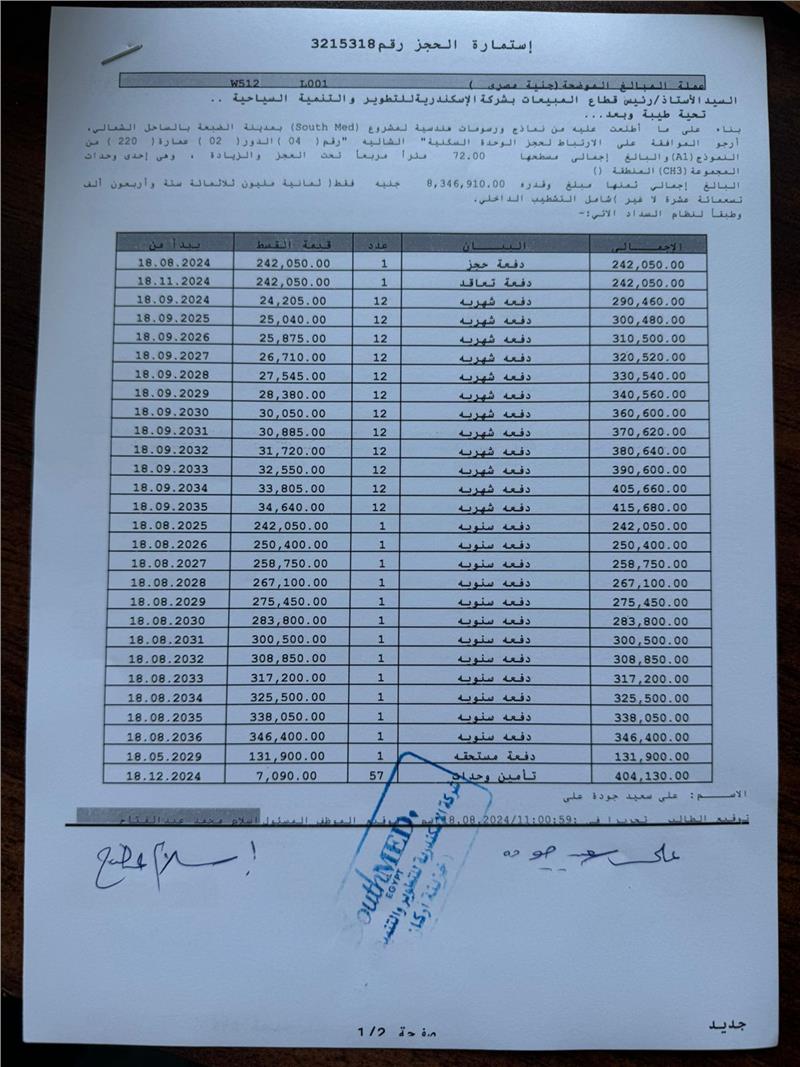 إستمارة الحجز رقم 3215318
عملة المبالغ الموضحة (جنية مصرى ) L001 W512
السيد الأستاذ/رئيس قطاع المبيعات بشركة الإسكندرية للتطوير والتنمية السياحية ..
تحية طيبة وبعد...
بناء على ما أطلعت عليه من نماذج ورسومات هندسية لمشروع (South Med) بمدينة الضبعة بالساحل الشمالي،
أرجو الموافقة على الارتباط لحجز الوحدة السكنية" الشاليه "رقم( 04 )الدور( 02 ) عمارة( 220 ) من
النموذج(A1)والبالغ إجمالي مسطحها 72.00 متراً مربعاً تحت العجز والزيادة ، وهى إحدى وحدات
المجموعة(CH3)المنطقة ()
البالغ إجمالي ثمنها مبلغ وقدره 8,346,910.00 جنيه فقط( ثمانية مليون ثلاثمائة ستة وأربعون ألف
تسعمائة عشرة لا غير )شامل التشطيب الداخلى.
وطبقاً لنظام السداد الاتي:-
الاجمالى البيان عدد قيمة القسط يبدأ من
242,050.00 دفعة حجز 1 242,050.00 18.08.2024
242,050.00 دفعة تعاقد 1 242,050.00 18.11.2024
290,460.00 دفعه شهريه 12 24,205.00 18.09.2024
300,480.00 دفعه شهريه 12 25,040.00 18.09.2025
310,500.00 دفعه شهريه 12 25,875.00 18.09.2026
320,520.00 دفعه شهريه 12 26,710.00 18.09.2027
330,540.00 دفعه شهريه 12 27,545.00 18.09.2028
340,560.00 دفعه شهريه 12 28,380.00 18.09.2029
360,600.00 دفعه شهريه 12 30,050.00 18.09.2030
370,620.00 دفعه شهريه 12 30,885.00 18.09.2031
380,640.00 دفعه شهريه 12 31,720.00 18.09.2032
390,600.00 دفعه شهريه 12 32,550.00 18.09.2033
405,660.00 دفعه شهريه 12 33,805.00 18.09.2034
415,680.00 دفعه شهريه 12 34,640.00 18.09.2035
242,050.00 دفعه سنويه 1 242,050.00 18.08.2025
250,400.00 دفعه سنويه 1 250,400.00 18.08.2026
258,750.00 دفعه سنويه 1 258,750.00 18.08.2027
267,100.00 دفعه سنويه 1 267,100.00 18.08.2028
275,450.00 دفعه سنويه 1 275,450.00 18.08.2029
283,800.00 دفعه سنويه 1 283,800.00 18.08.2030
300,500.00 دفعه سنويه 1 300,500.00 18.08.2031
308,850.00 دفعه سنويه 1 308,850.00 18.08.2032
317,200.00 دفعه سنويه 1 317,200.00 18.08.2033
325,500.00 دفعه سنويه 1 325,500.00 18.08.2034
338,050.00 دفعه سنويه 1 338,050.00 18.08.2035
346,400.00 دفعه سنويه 1 346,400.00 18.08.2036
131,900.00 دفعة مستحقه 1 131,900.00 18.05.2029
404,130.00 تأمين وحدات 57 7,090.00 18.12.2024
الاســـم: على سعيد جودة على
توقيع الطالب تحريرا في :18.08.2024/11:00:59 توقيع الموظف المسئول اسلام محمد عبدالفتاح
على سعيد جوده
SouthMED.
EGYPT
شركة الإسكندرية للتطوير والتنمية
صفحة 1/2
جديد